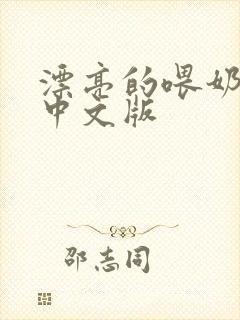 漂亮的喂奶
中文版
邵志同